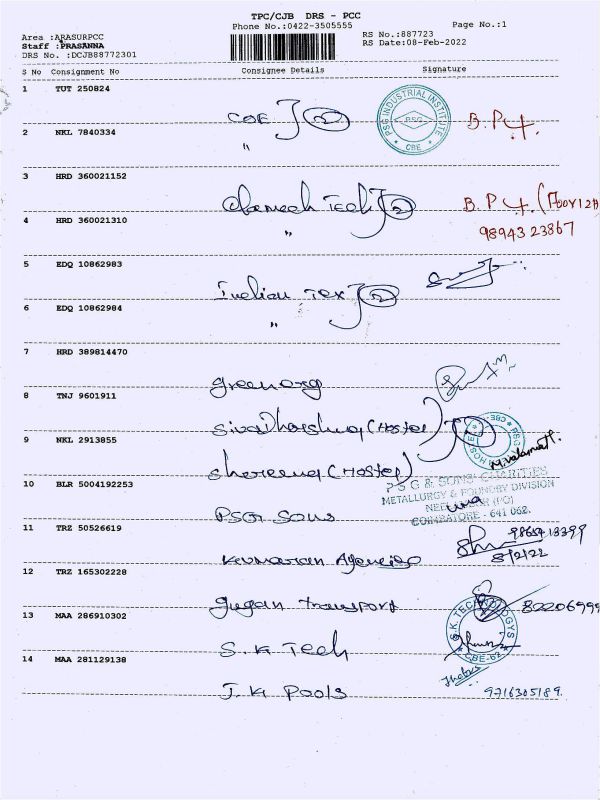 TPC/CJB DRS - PCC
Phone No.:0422-3505555
Page No.:1
Area :ARASURPCC
RS No.:887723
Staff :PRASANNA
RS Date:08-Feb-2022
DRS No. :DCJB88772301
S No Consignment No Consignee Details Signature
1 TUT 250824
COE 2
PSG INDUSTRIAL INSTITUTE
PSG
CBE
B.P.
2 NKL 7840334
"
3 HRD 360021152
Tech 2
B.P.
4 HRD 360021310
"
98943 23867
5 EDQ 10862983
Indian Tex 2
6 EDQ 10862984
"
7 HRD 389814470
greenorg
8 TNJ 9601911
(Hostel) 2
9 NKL 2913855
(Hostel)
PSG HOSTEL CBE
10 BLR 5004192253
PSG Sons
P S G & SONS' CHARITIES
METALLURGY & FOUNDRY DIVISION
COIMBATORE - 641 062.
11 TRZ 50526619
Kumaran Agencies
8/2/22
12 TRZ 165302228
gugan transport
13 MAA 286910302
S.K Tech
CBE-62
14 MAA 281129138
J.K Pools
9716305189.